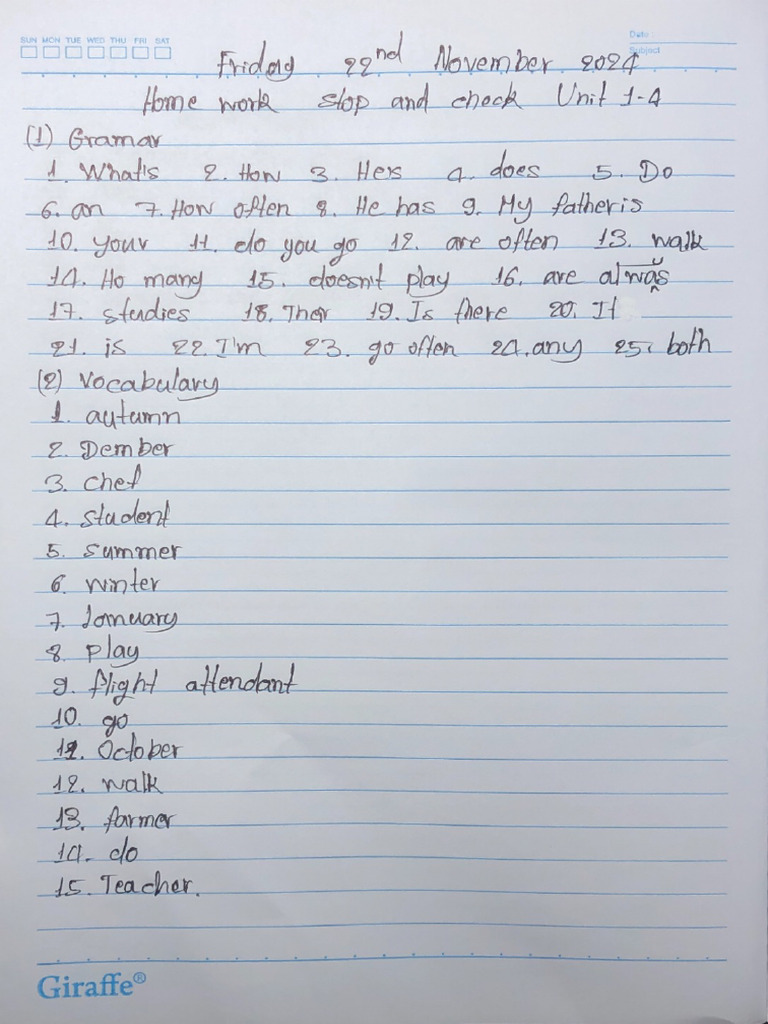 SUN MON TUE WED THU FRI SAT
Date
Subject
Friday 22nd November 2024
Home work stop and check Unit 1-4
(1) Gramar
1. What's 2. How 3. Hers 4. does 5. Do
6. an 7. How often 8. He has 9. My father is
10. your 11. do you go 12. are often 13. walk
14. Ho many 15. doesn't play 16. are always
17. studies 18. Ther 19. Is there 20. It
21. is 22. I'm 23. go often 24. any 25. both
(2) Vocabulary
1. autumn
2. Dember
3. chef
4. student
5. summer
6. winter
7. January
8. play
9. flight attendant
10. go
11. October
12. walk
13. farmer
14. do
15. Teacher.
Giraffe®